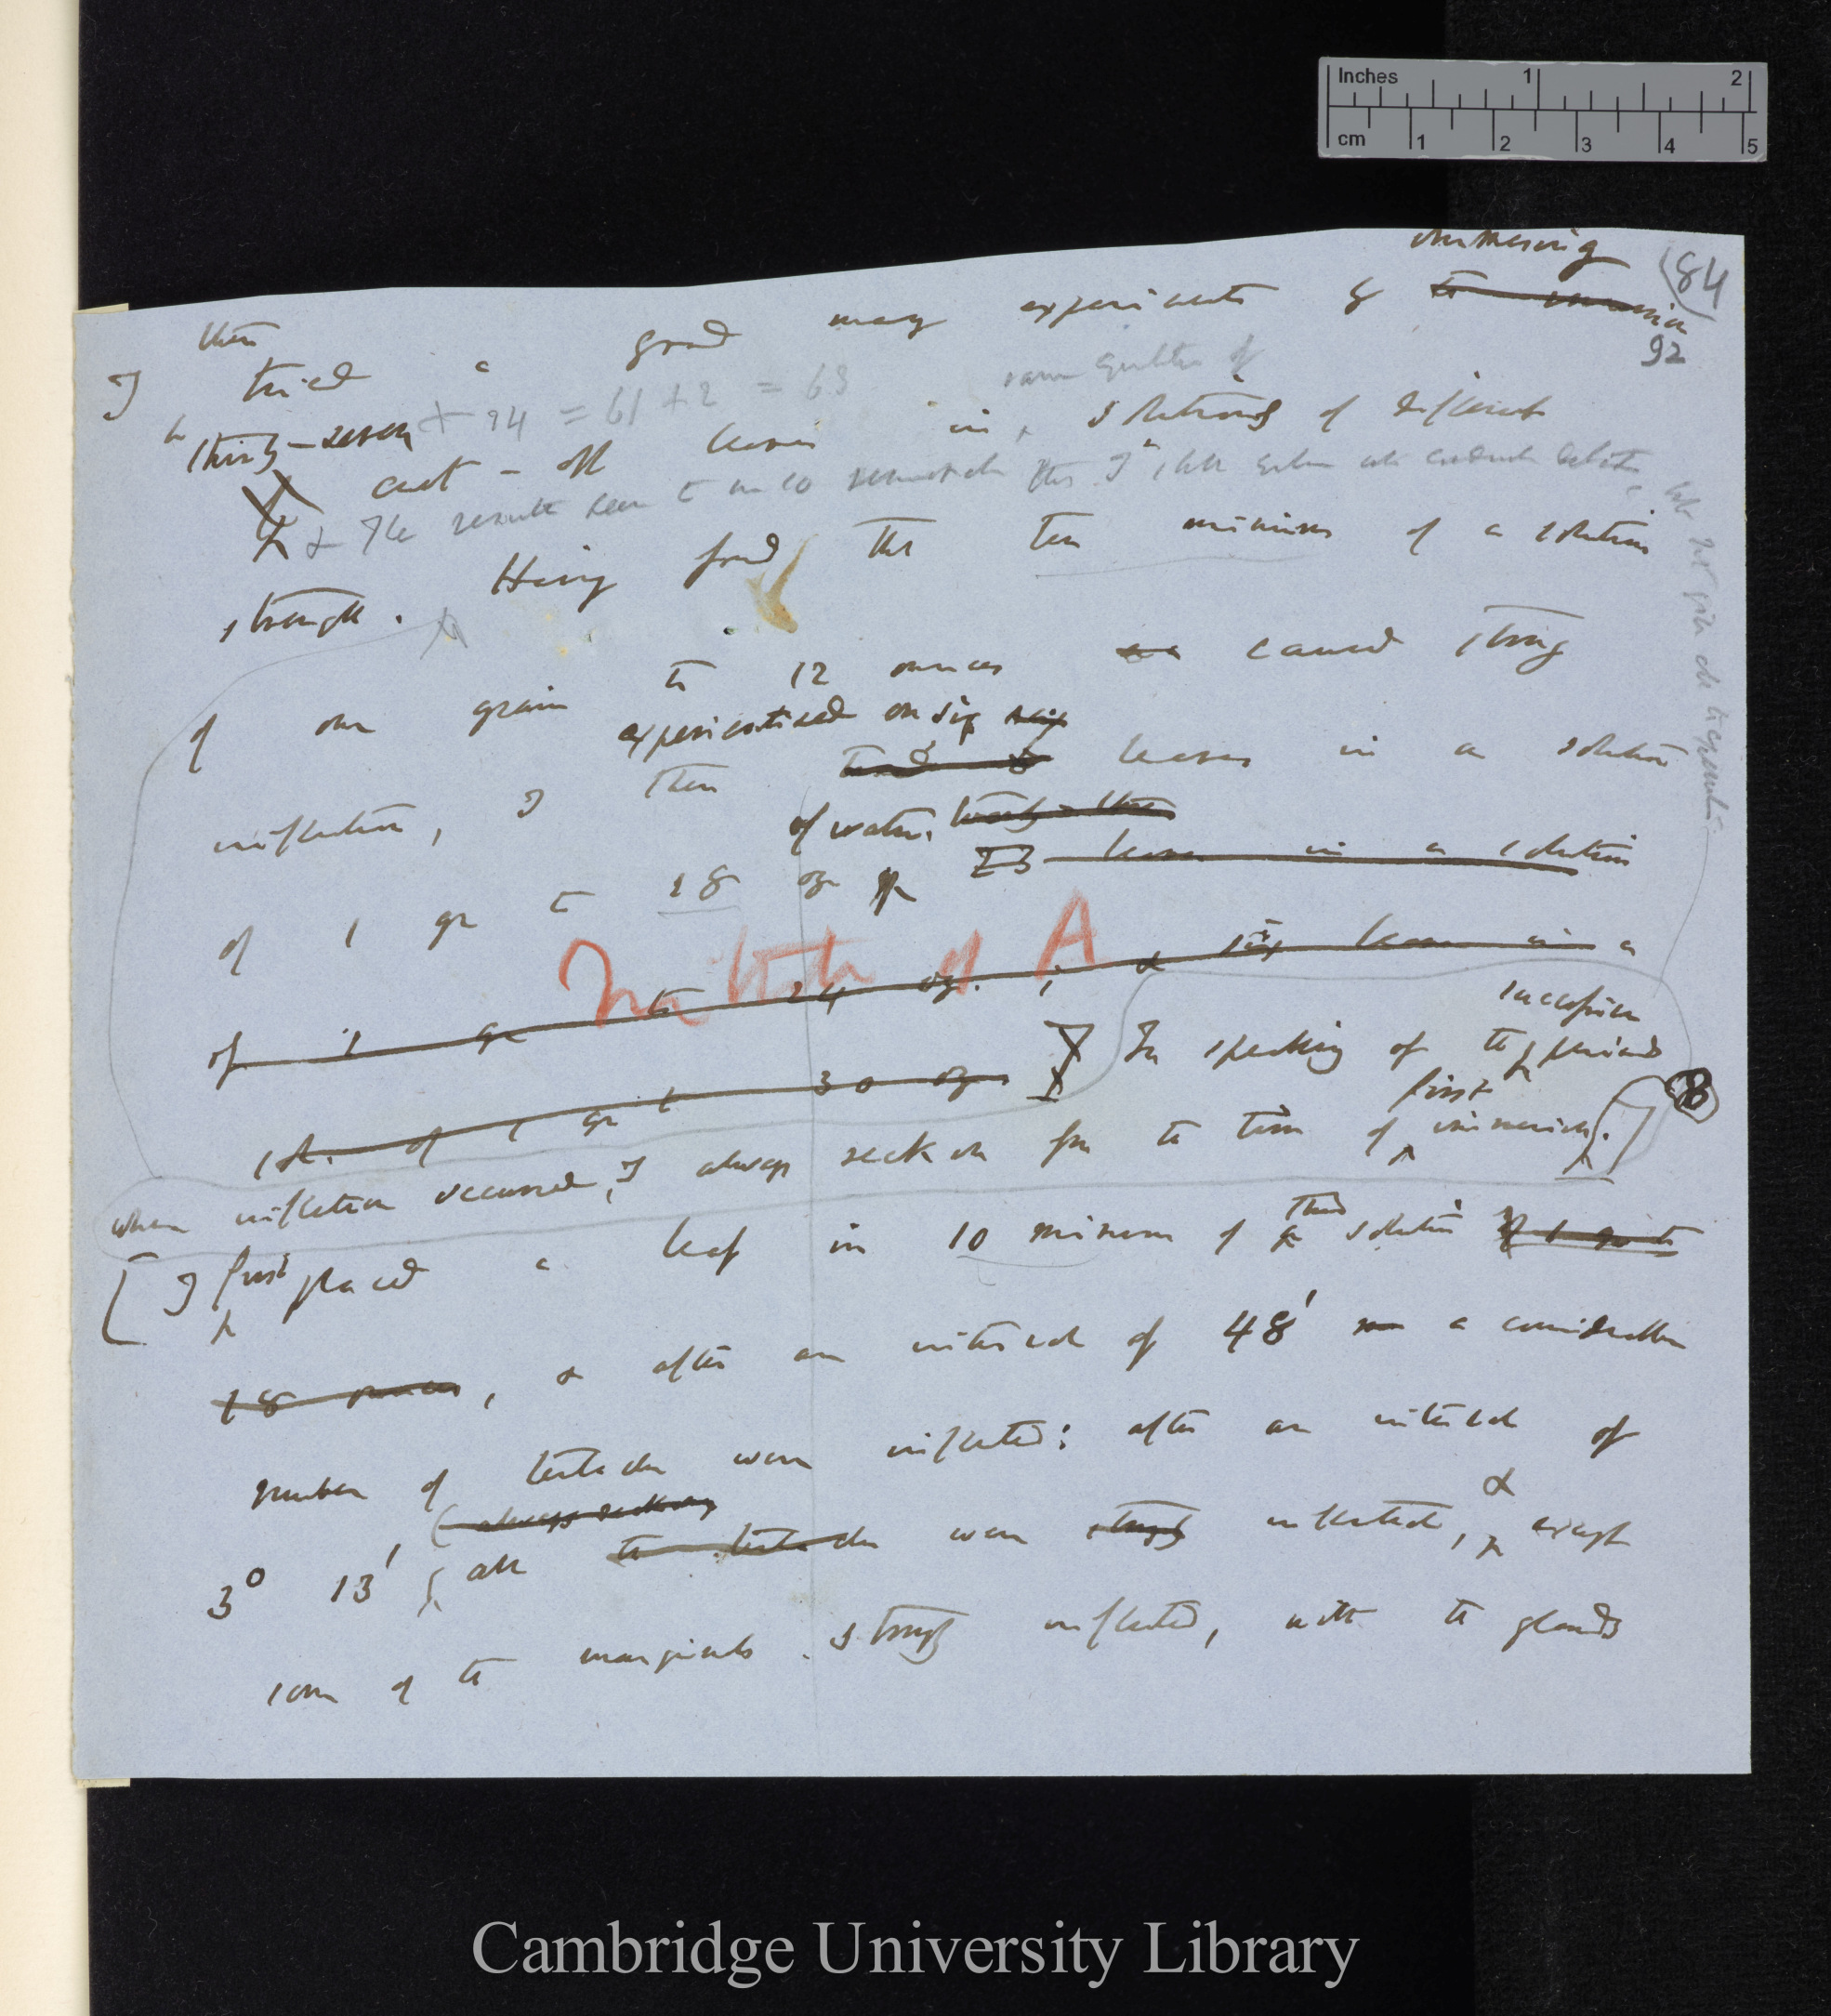 Inches 1 2
cm 1 2 3 4 5
immersing
(84)
then
I tried a good many experiments by the immersion
92
thirty-seven + 24 = 61 + 2 = 63
same quantities of
cut-off leaves in solutions of different
& The results seem to me so remarkable that I shall give
strength. Having found that ten minims of a solution
of one grain to 12 ounces caused strong
experimented on six
inflection, I then tried leaves in a solution
of water. twenty-three
of 1 gr to 18 oz 23 leaves in a solution
Nitrate of A
of 1 gr to 24 oz. ; & six leaves in a
successive
sol. of 1 gr to 30 oz. In speaking of the periods
first
B
when inflection occurred, I always reckon from the time of immersion.
this
[I first placed a leaf in 10 minims of solution of 1 gr to
18 ounces, & after an interval of 48' a considerable
number of tentacles were inflected; after an interval of
(always reckoning
&
3° 13' all the tentacles were strongly inflected, except
some of the marginals strongly inflected, with the glands
Cambridge University Library